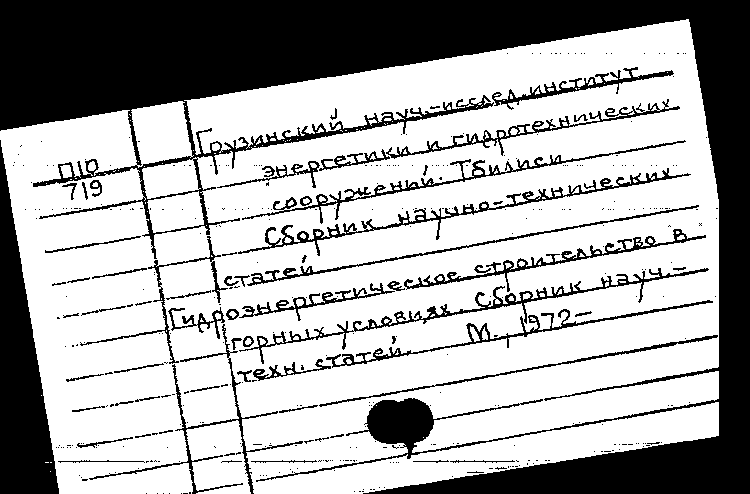 П10
719
Грузинский науч.-исслед. институт
энергетики и гидротехнических
сооружений. Тбилиси.
Сборник научно-технических
статей
Гидроэнергетическое строительство в
горных условиях. Сборник науч.-
техн. статей. М., 1972-